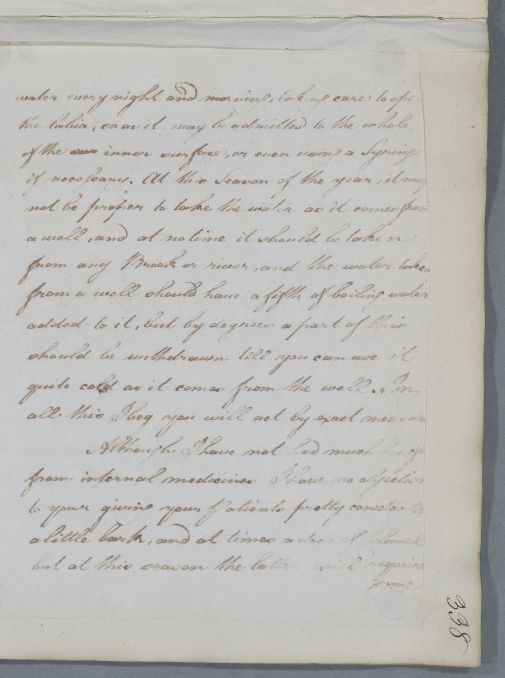 water every night and morning, taking care to open
the labia, so as it may be admitted to the whole
of the our inner surface, or even using a Syringe
if necessary. At this Season of the year, it may
not be proper to take the water as it comes from
a well, and at no time it should be taken
from any Brook or river, and the water taken
from a well should have a fifth of boiling water
added to it, but by degrees a part of this
should be withdrawn till you can use it
quite cold as it comes from the well. In
all this I beg you will act by exact measure
Although I have not had much
from internal medicines I have no objection
to your giving your Patients pretty constantly
a little bark, and at times a dose of Calomel
but at this season the latter will require
some
338